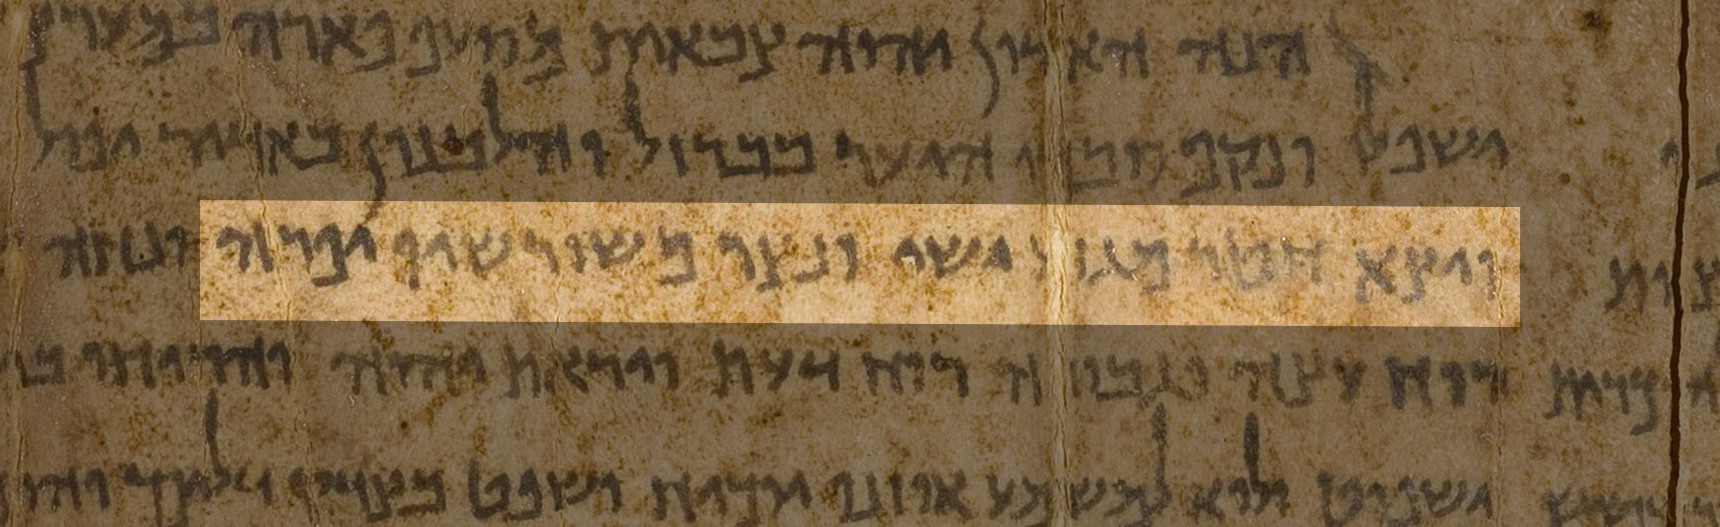 הנה האדון יהוה צבאות מסעף פארה
ונקף סבכי היער בברזל והלבנון באדיר יפול
ויצא חטר מגזע ישי ונצר משורשיו יפרה ונחה
רוח עצה וגבורה רוח דעת ויראת יהוה והריחו
ישפוט ולוא למשמע אוזניו יוכיח ושפט בצדק דלים